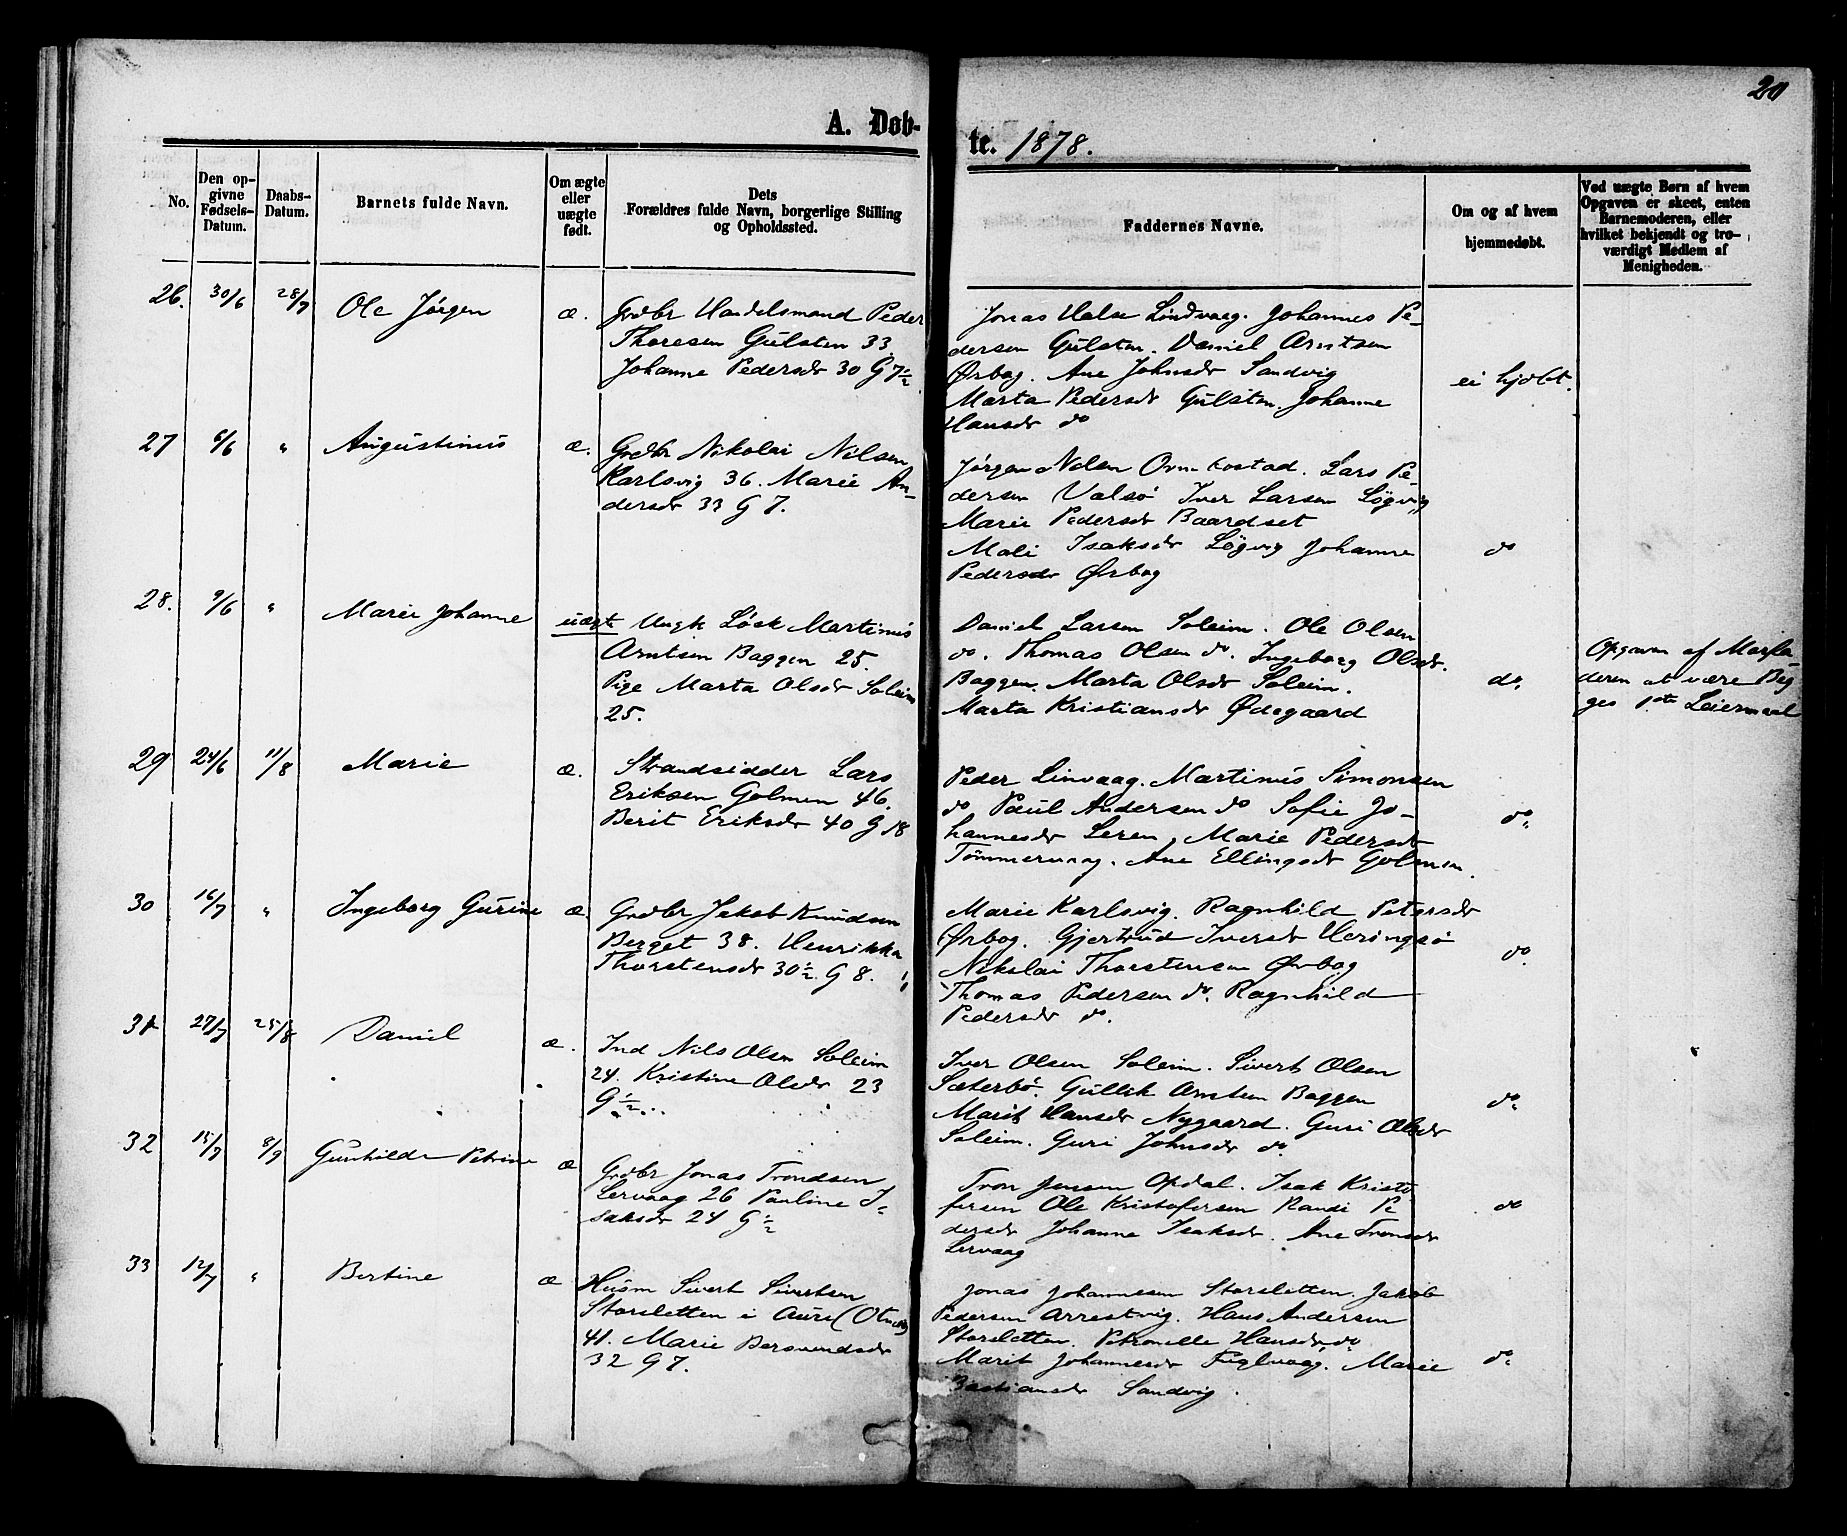 20
A. Døb-
te. 1878.
No.
Den op-
givne
Fødsels-
Datum.
Daabs-
Datum.
Barnets fulde Navn.
Om ægte
eller
uægte
født.
Dets
Forældres fulde Navn, borgerlige Stilling
og Opholdssted.
Faddernes Navne.
Om og af hvem
hjemmedøbt.
Ved uægte Børn af hvem
Opgaven er skeet, enten
Barnemoderen, eller
hvilket bekjendt og tro-
værdigt Medlem af
Menigheden.
26. 30/6 28/7 Ole Jørgen æ.
Grdbr Handelsmand Peder
Thoresen Gülsten 33
Johanne Pedersdr 30 G 7½
Jonas Halse Lindvaag. Johannes Pe-
dersen Gülsten. Daniel Arntsen
Ørbog. Ane Johnsdr Sandvig
Marta Pedersdr Gülsten. Johanne
Hansdr do
ei hjdbt.
27 6/6 " Augustinus æ.
Grdbr Nikolai Nilsen
Karlsvig 36. Marie An-
dersdr 33 G 7.
Jørgen Nelsen Lars Pe-
dersen Valsø Iver Larsen Løgvig
Marie Pedersdr Baardset
Mali Isaksdr Løgvig Johanne
Pedersdr Ørbog
do
28. 9/6 " Marie Johanne uægte
Ungk Løsk Martinus
Arntsen Baggen 25.
Pige Marta Olsdr Soleim
25.
Daniel Larsen Soleim. Ole Olsen
do. Thomas Olsen do. Ingeborg Olsdr.
Baggen. Marta Olsdr Soleim.
Marta Kristiansdr Ødegaard
do.
Opgaven af
deren at være Beg-
ges 1ste Leiermaal
29 24/6 11/8 Marie æ.
Strandsidder Lars
Eriksen Golmen 46.
Berit Eriksdr 40 G 18
Peder Linvaag. Martinus Simonsen
do Paul Andersen do Sofie Jo-
hannesdr Leren, Marie Pedersdr
Tømmervaag. Ane Ellingsdr Golmen.
do.
30 16/7 " Ingeborg Gurine æ
Grdbr Jakob Knudsen
Berget 38. Henrikka
Thorstensdr 30½. G 8.
Marie Karlsvig. Ragnhild Petersdr
Ørbog. Gjertrud Iversdr Heringsø
Nikolai Thorstensen Ørbog
Thomas Pedersen do. Ragnhild
Pedersdr do.
do.
31 27/7 25/8 Daniel æ.
Ind Nils Olsen Soleim
24. Kristine Olsdr 23
G ½...
Iver Olsen Soleim. Sivert Olsen
Sæterbø. Gullik Arntsen Baggen
Marit Hansdr Nygaard. Guri Olsdr
Soleim. Guri Johnsdr do.
do.
32 15/7 8/9 Gunhilde Petrine æ
Grdbr Jonas Trondsen
Lervaag 26 Pauline I-
saksdr 24 G ½
Tron Jensen Opdal. Isak Kristo
fersen Ole Kristofersen Randi Pe
dersdr Johanne Isaksdr. Ane Tronsdr
Lervaag
do
33 12/7 " Bertine æ
Husm Sivert Sivertsen
Storsletten i Aure
41. Marie Bersvendsdr
32 G 7.
Jonas Johannesen Storsletten. Jakob
Pedersen Arrestvig. Hans Andersen
Storsletten. Petronelle Hansdr, do
Marit Johannesdr Fuglvaag. Marie
Bastiansdr Sandvig.
do.